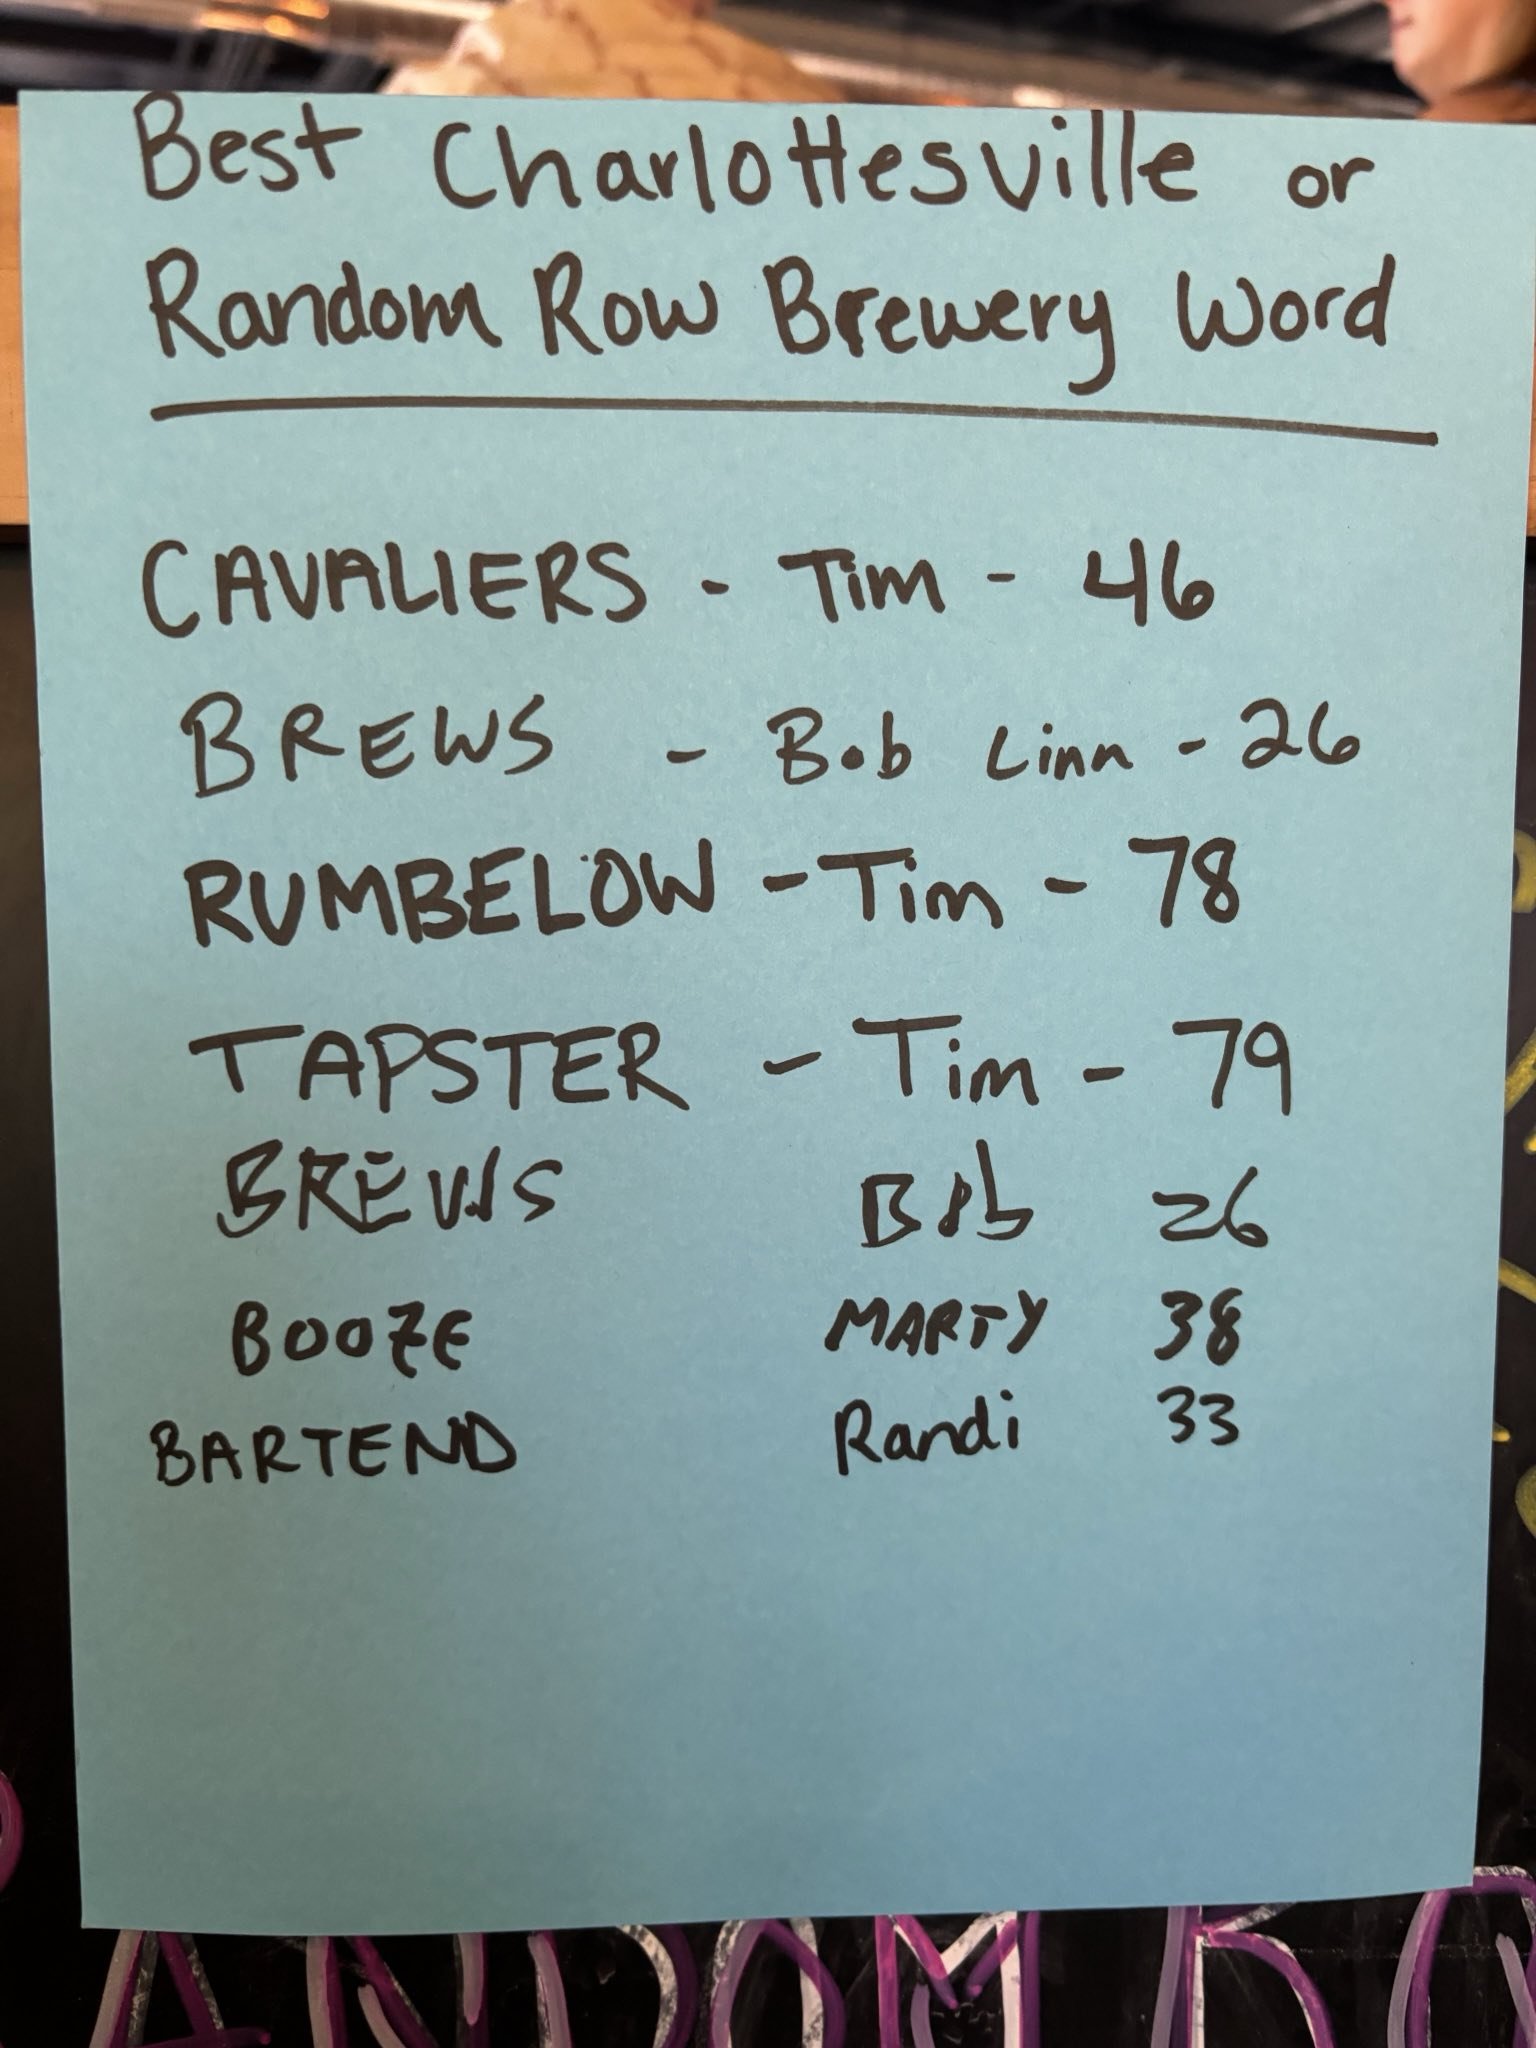 Best Charlottesville or
Random Row Brewery Word
CAVALIERS - Tim - 46
BREWS - Bob Linn - 26
RUMBELOW - Tim - 78
TAPSTER - Tim - 79
BREWS Bob 26
BOOZE MARTY 38
BARTEND Randi 33